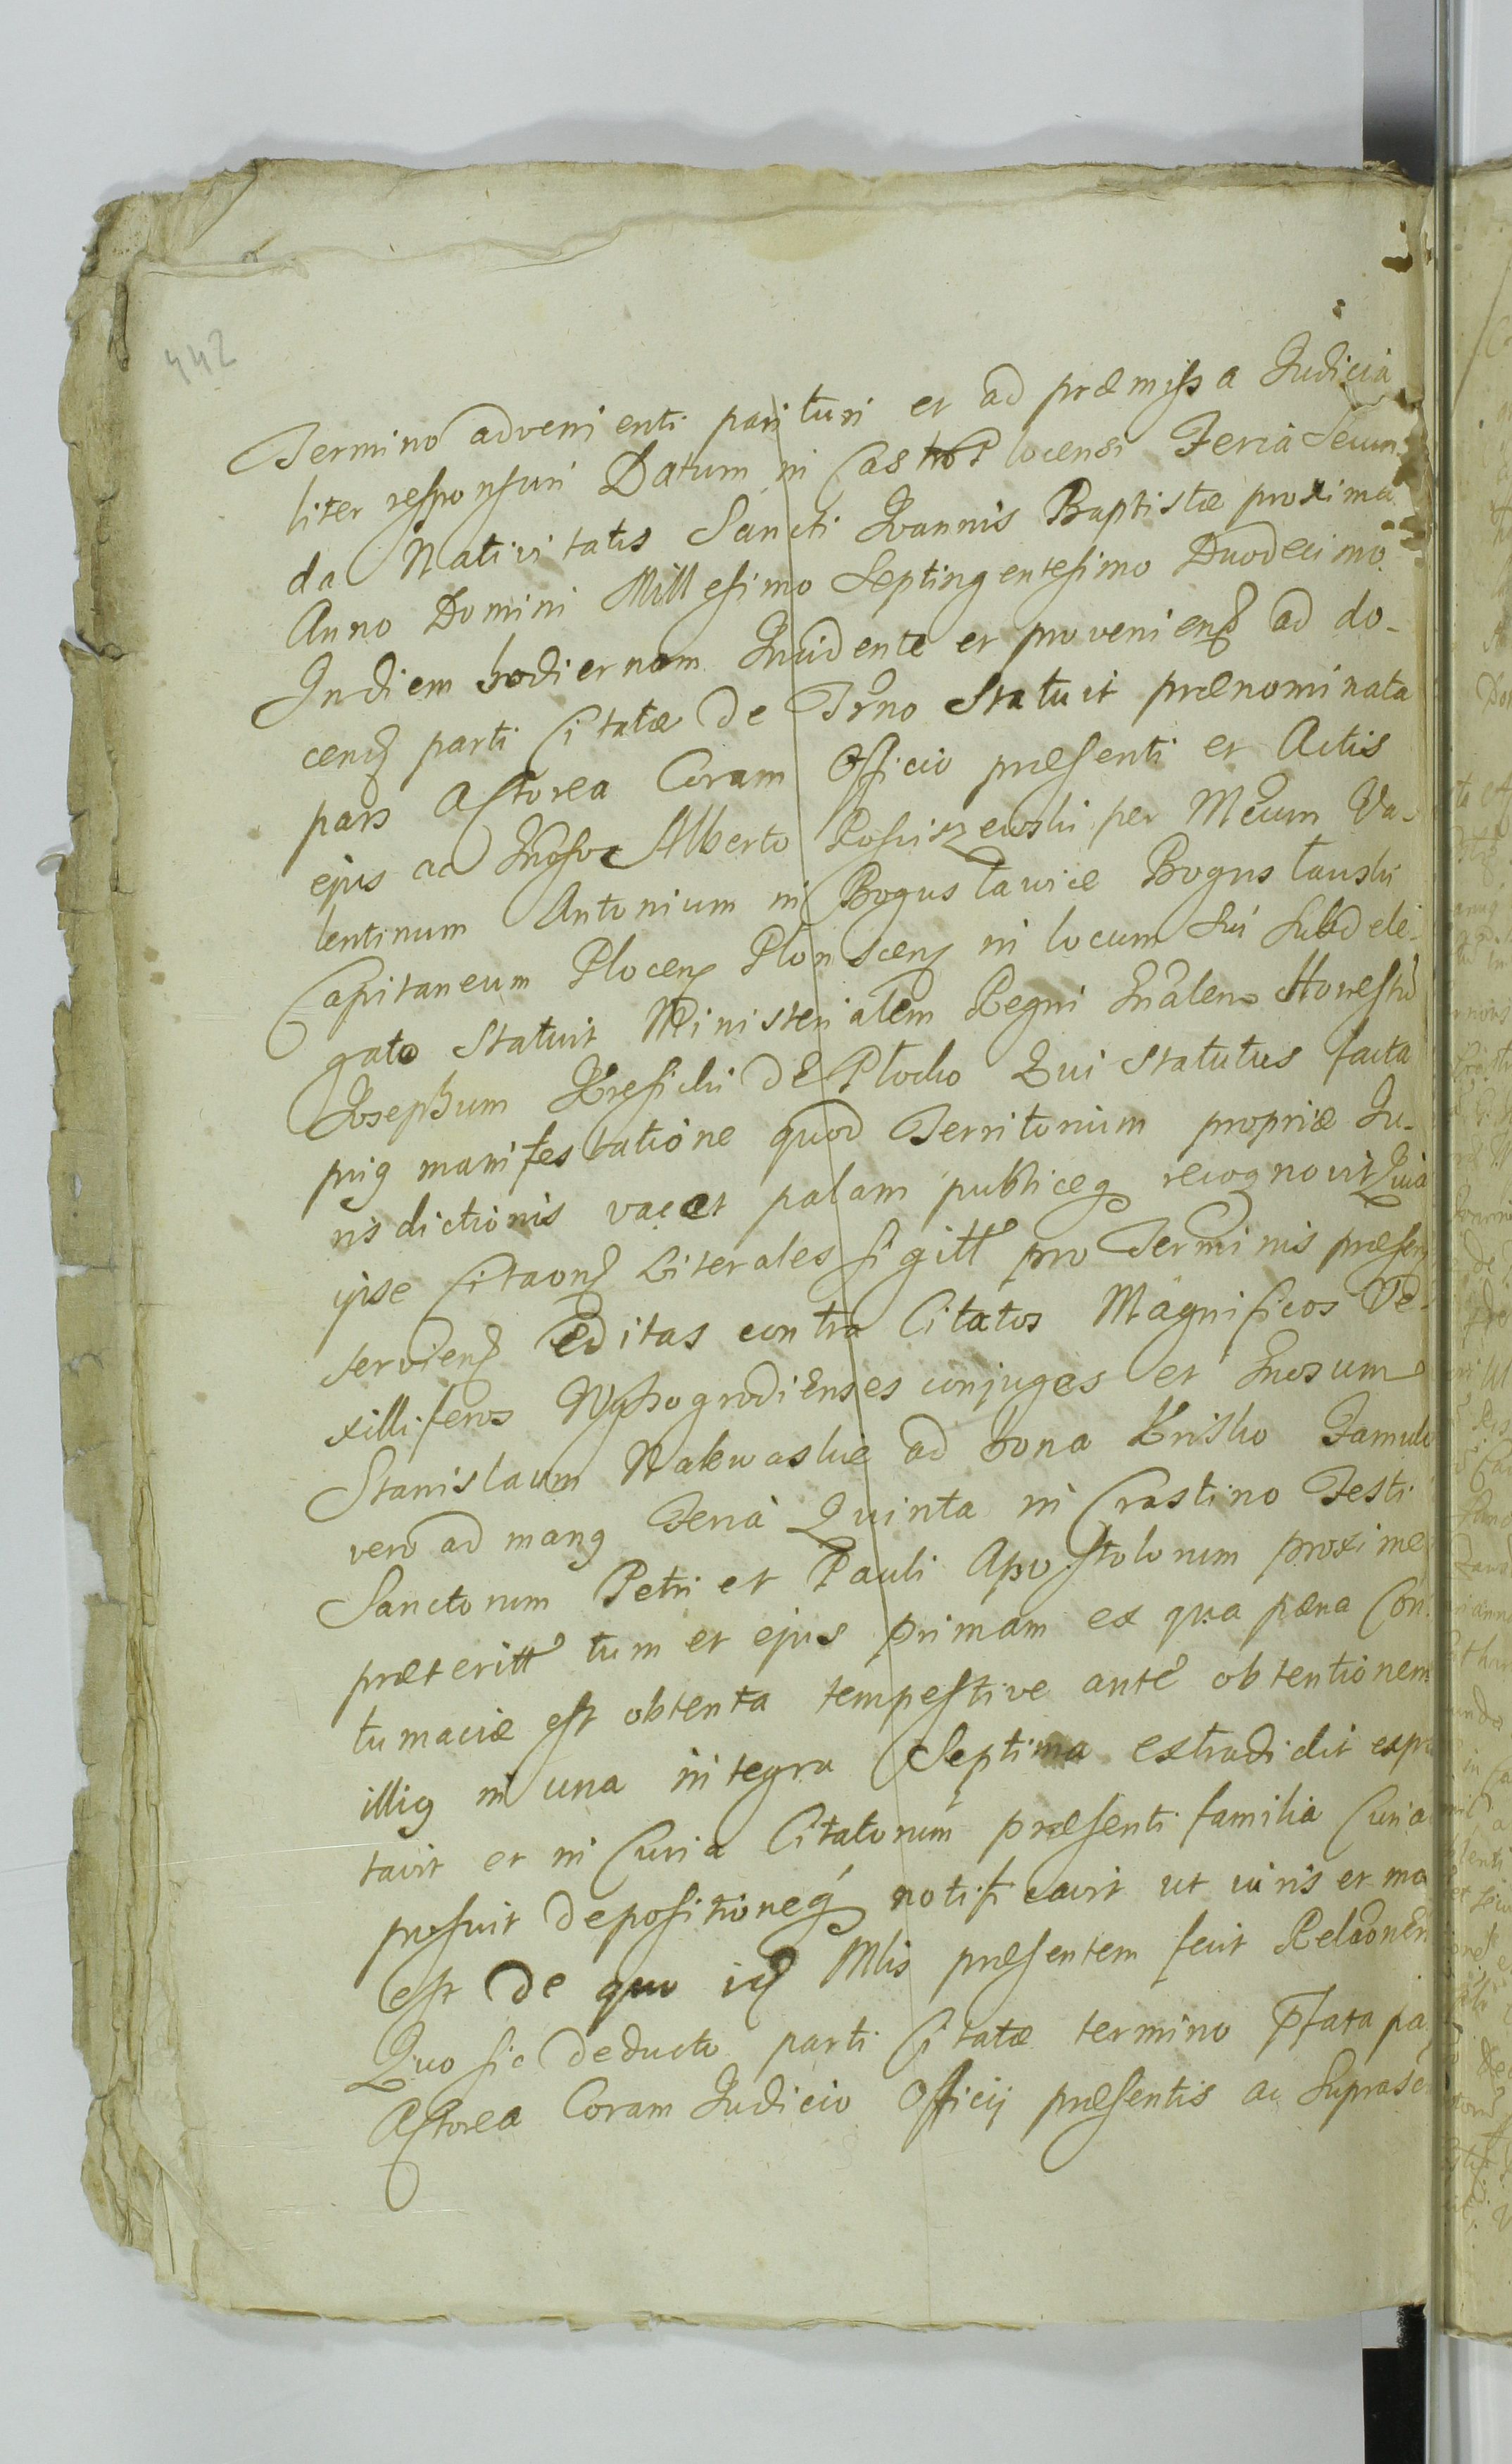 442
Termino advenienti parituri et ad præmissa Judicia
liter responsuri Datum in Castro Plocensi Feria Secun
da Nativitatis Sancti Joannis Baptistæ proxima
Anno Domini Millesimo Septingentesimo Duodecimo
In diem hodiernam Incidente et provenienţ ad do-
cenţ parti Citatæ de Trno Statuit prænominata
pars Actorea Coram Officio præsenti et Actis
ejus ac Alberto Rosciszewski per Mcum Va-
lentinum Antonium in Bogusławice Bogusławski
Capitaneum Plocenş Płonscenş in locum sui Subdele-
gato Statuit Ministerialem Regni Gnalem Honestũ
Josephum de Płocko Qui Statutus facta
prig manifestatione quod Territorium propriæ Ju-
risdictionis vacet palam publiceq recognovit Quia
ipse Citaonş Literales sigill pro Terminis præsenş
servienş Editas contra Citatos Magnificos Ve-
xilliferos Wyssogrodienses conjuges et Gnosum
Stanislaum Nakwaskie ad bona Krisko Famulo
vero ad mang Feria Quinta in Crastino Festi
Sanctorum Petri et Pauli Apostolorum proxime
præteritt tum et ejus primam ex qua pæna Con
tumaciæ est obtenta tempestive ante obtentionem
illig in una integra Septima extradidit expr
tavit et in Curia Citatorum præsenti familia Curia
posuit depositioneq notificavit ut iuris et mo
est De quo iş Mlis præsentem fecit Relãonem
Quo sic deducto parti Citatæ termino Pfata pa
Actorea Coram Judicio Officij præsentis ac Suprasc